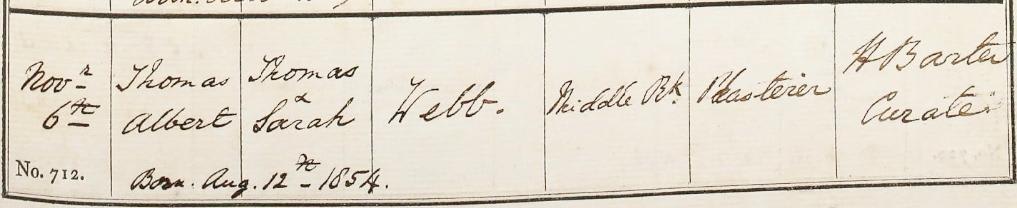 Novr
6th
Thomas
Albert
Thomas
&
Sarah
Webb.
Middle Rk.
Plasterer
H Barter
Curate.
No. 712.
Born. Aug. 12th 1854.